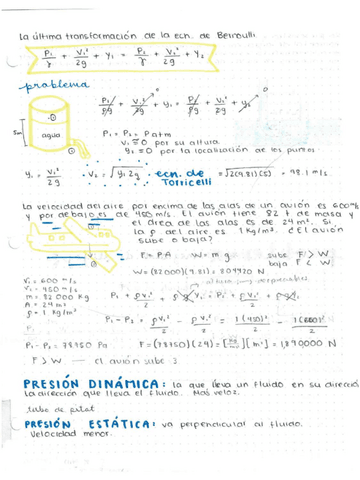 La última transformación de la ecn. de Bernoulli
P₁/γ + V₁²/2g + y₁ = P₂/γ + V₂²/2g + y₂
problema
P₁/ρg + V₁²/2g + y₁ = P₂/ρg + V₂²/2g + y₂
5m
agua
P₁ = P₂ = Patm
V₁ = 0 por su altura
y₂ = 0 por la localización de los puntos
y₁ = V₂²/2g
V₂ = √y₁ 2g
ecn. de Torricelli
= √2(9.81)(5) = 98.1 m/s.
La velocidad del aire por encima de las alas de un avión es 600 m/s
y por debajo es de 450 m/s. El avión tiene 82 t de masa y
el área de las alas es de 24 m². Si
la ρ del aire es 1 Kg/m³. ¿El avión
sube o baja?
F = PA
W = mg
sube F > W
baja F < W
W = (82000)(9.81) = 804420 N
V₁ = 600 m/s
V₂ = 450 m/s
m = 82000 Kg
A = 24 m²
ρ = 1 Kg/m³
P₁ + ρV₁²/2 + ρgy₁ = P₂ + ρV₂²/2 + ρgy₂
P₁ - P₂ = ρV₂²/2 - ρV₁²/2 = 1(450)²/2 - 1(600)²/2
P₁ - P₂ = 78750 Pa
F = (78750)(24) = [Kg/ms²][m²] = 1,890000 N
F > W — el avión sube
PRESIÓN DINÁMICA: la que lleva un fluido en su direcció
La dirección que lleva el fluido. Más veloz.
tubo de pitot
PRESIÓN ESTÁTICA: va perpendicular al fluido.
Velocidad menor.